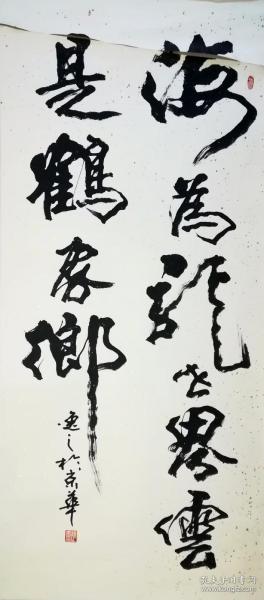 海為龍世界雲
是鶴家鄉
逸之於京華
孔夫子旧书网